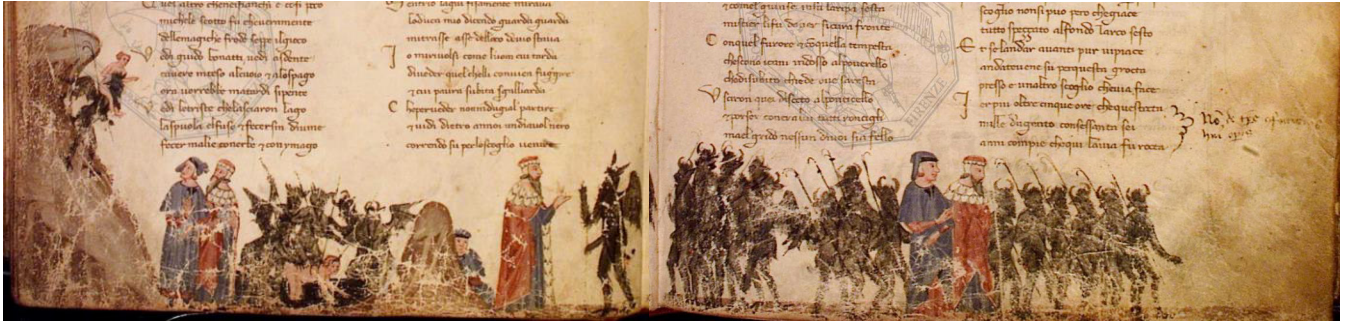 Quel altro chenefianchi e cosi poco
michele scotto fu cheueramente
dellemagiche frode seppe ilgioco
Vedi guido bonatti uedi asdente
cauere inteso alcuoio z alospago
ora uorrebbe matardi sipente
Vedi letriste chelasciaron lago
laspuola elfuso z fecersin diuine
fecer malie conerbe z conymago
lagiu fisamente miraua
loduca mio dicendo guarda guarda
mitrasse asse delloco douio staua
Io miuolsi come luom cui tarda
diueder quel chelli conuien fuggire
z cui paura subita sgagliarda
Che perueder nonindugial partire
z uidi dietro annoi undiauol nero
correndo su perloscoglio uenire
z comel
mistier lifu dauer sicura fronte
Conquel furore z coquella tempesta
chescono icani indosso alpouerello
chedisubito chiede oue sarresta
Usciron quei disotto alponticello
z contra lui tutti ironcigli
mael grido nessun diuoi sia fello
scoglio nonsi puo pero chegiace
tutto spezzato alfondo larco sesto
Et selandar auanti pur uipiace
andateuene su perquesta grotta
presso e unaltro scoglio cheuia face
Ier piu oltre cinque ore chequestotta
mille dugento consessanta sei
anni compie chequi lauia fu rotta
FIRENZE